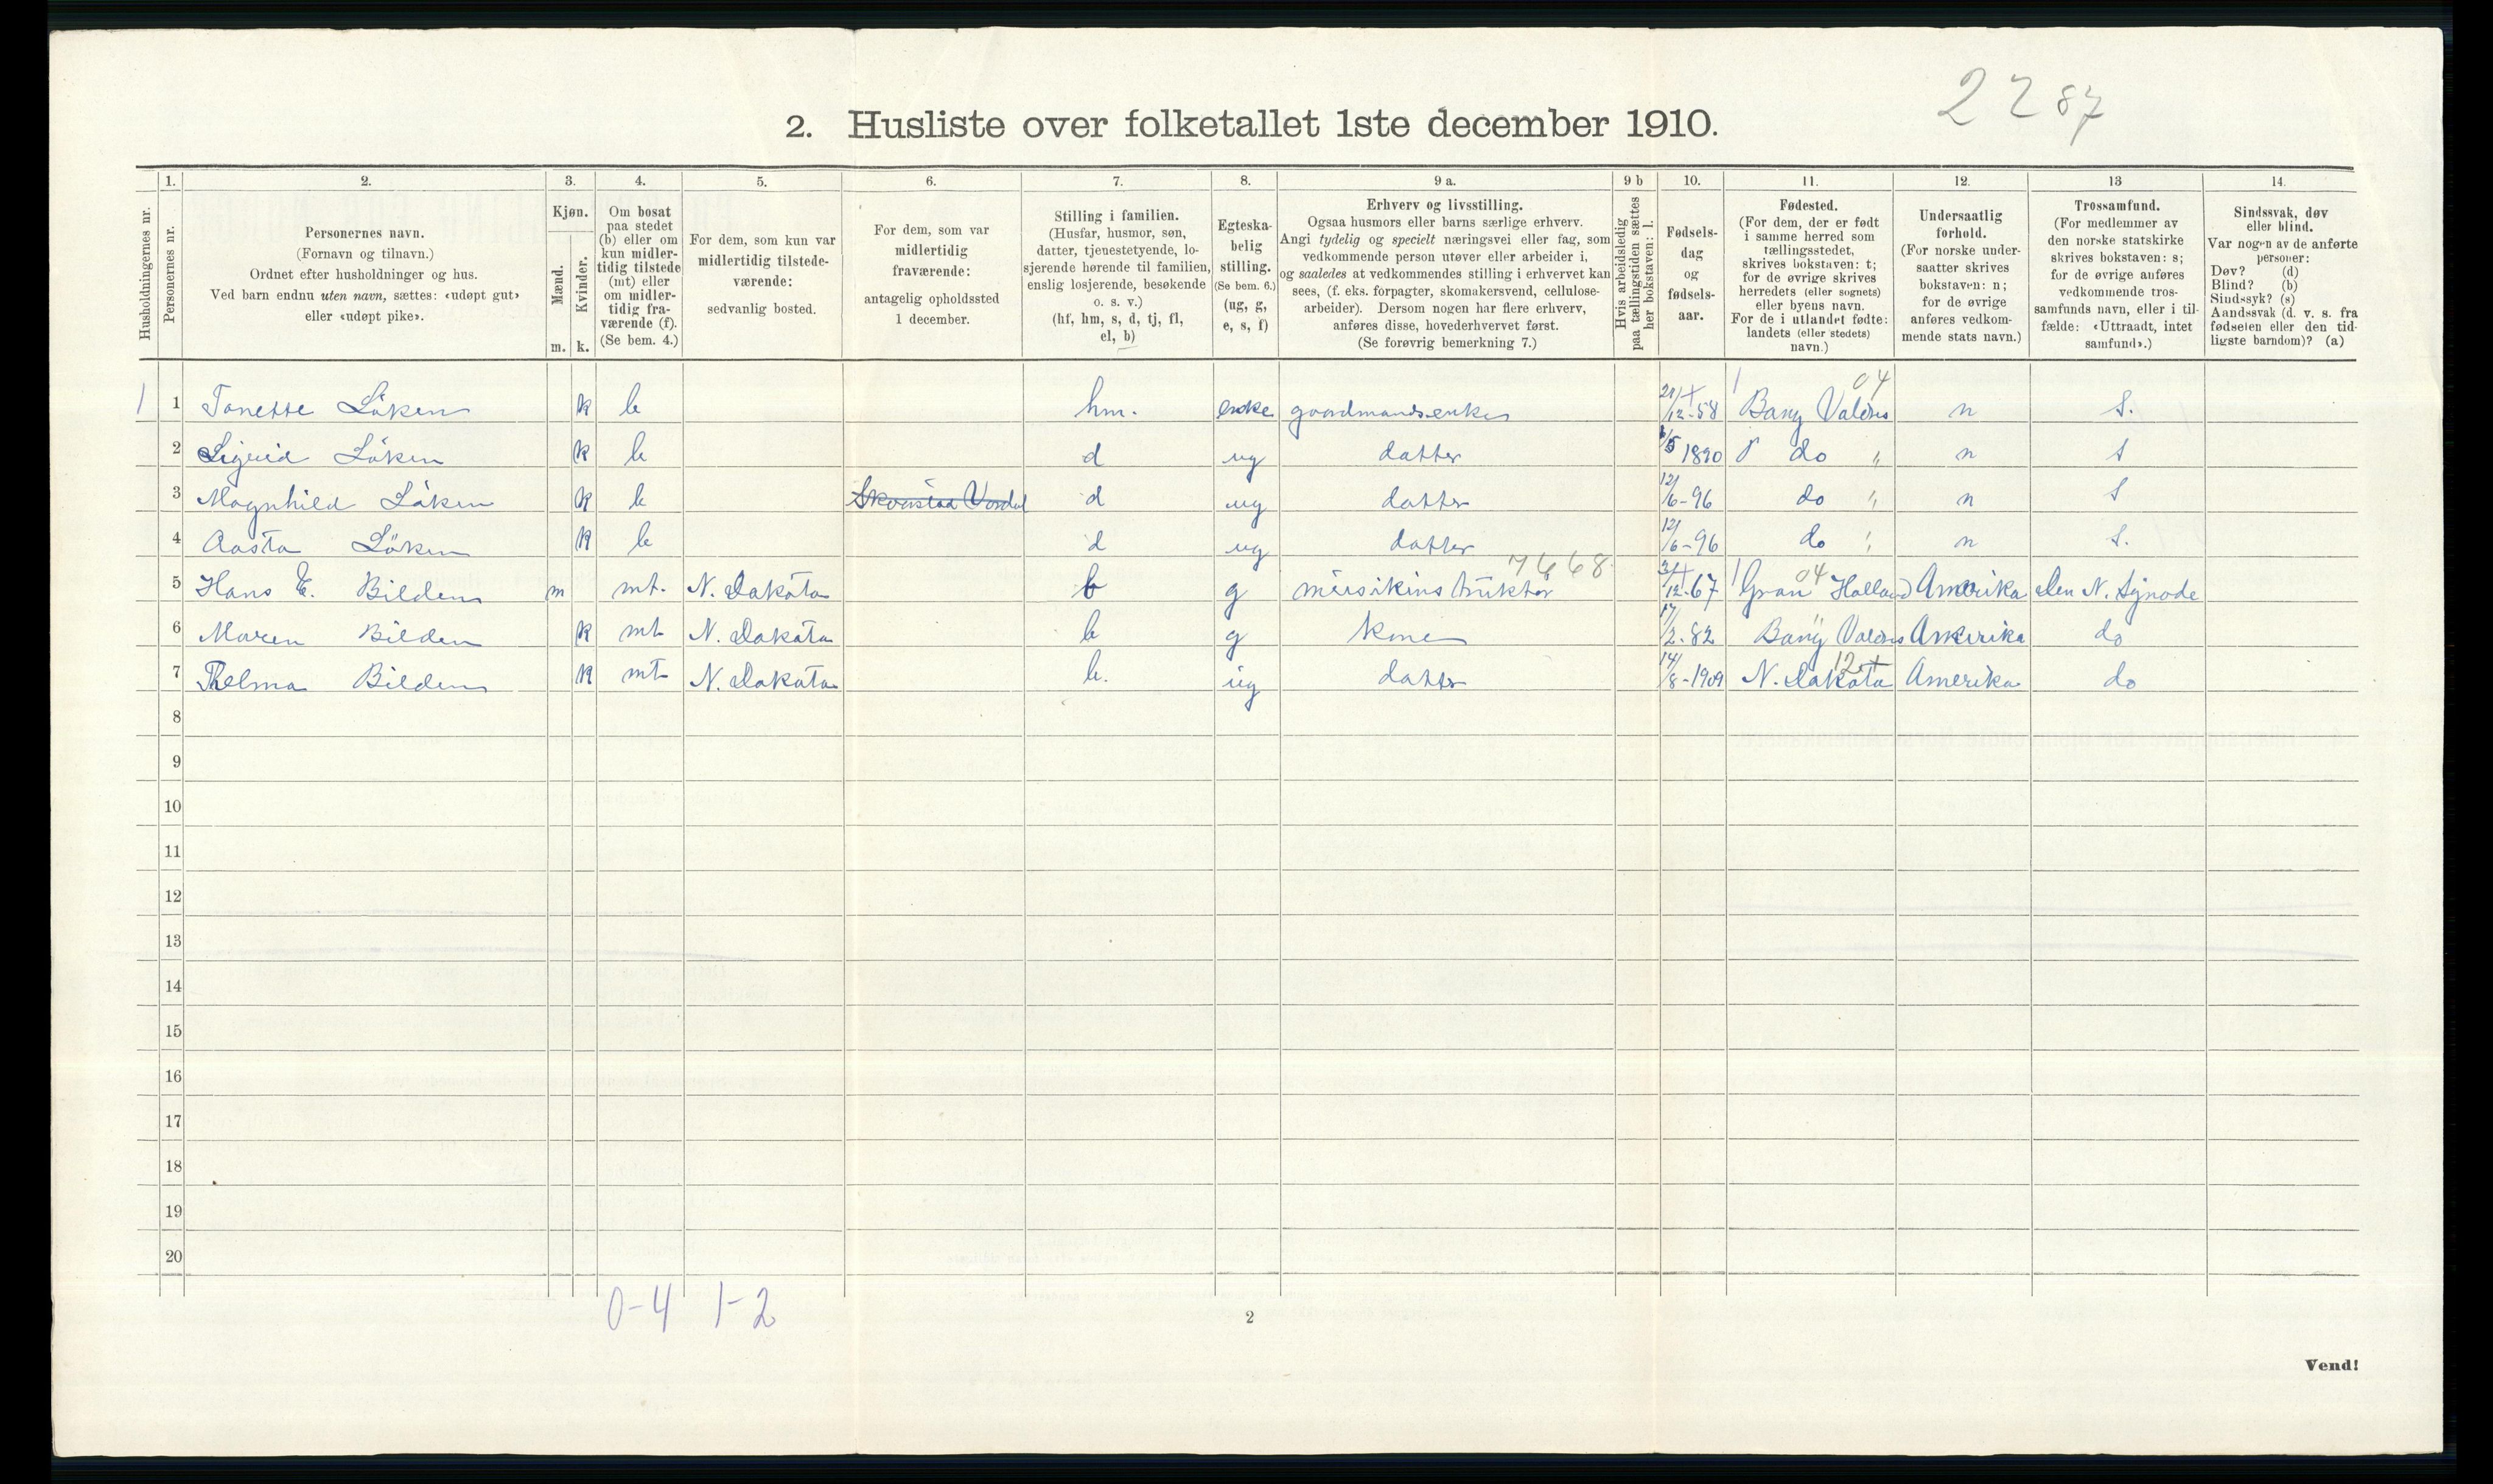 2 2 87
2. Husliste over folketallet 1ste december 1910.
1. 2. 3. 4. 5. 6. 7. 8. 9 a. 9 b 10. 11. 12. 13 14.
Husholdningernes nr.
Personernes nr.
Personernes navn.
(Fornavn og tilnavn.)
Ordnet efter husholdninger og hus.
Ved barn endnu uten navn, sættes: «udøpt gut»
eller «udøpt pike».
Kjøn.
Mænd.
Kvinder.
m. k.
Om bosat
paa stedet
(b) eller om
kun midler-
tidig tilstede
(mt) eller
om midler-
tidig fra-
værende (f).
(Se bem. 4.)
For dem, som kun var
midlertidig tilstede-
værende:
sedvanlig bosted.
For dem, som var
midlertidig
fraværende:
antagelig opholdssted
1 december.
Stilling i familien.
(Husfar, husmor, søn,
datter, tjenestetyende, lo-
sjerende hørende til familien,
enslig losjerende, besøkende
o. s. v.)
(hf, hm, s, d, tj, fl,
el, b)
Egteska-
belig
stilling.
(Se bem. 6.)
(ug, g,
e, s, f)
Erhverv og livsstilling.
Ogsaa husmors eller barns særlige erhverv.
Angi tydelig og specielt næringsvei eller fag, som
vedkommende person utøver eller arbeider i,
og saaledes at vedkommendes stilling i erhvervet kan
sees, (f. eks. forpagter, skomakersvend, cellulose-
arbeider). Dersom nogen har flere erhverv,
anføres disse, hovederhvervet først.
(Se forøvrig bemerkning 7.)
Hvis arbeidsledig
paa tællingstiden sættes
her bokstaven: l.
Fødsels-
dag
og
fødsels-
aar.
Fødested.
(For dem, der er født
i samme herred som
tællingsstedet,
skrives bokstaven: t;
for de øvrige skrives
herredets (eller sognets)
eller byens navn.
For de i utlandet fødte:
landets (eller stedets)
navn.)
Undersaatlig
forhold.
(For norske under-
saatter skrives
bokstaven: n;
for de øvrige
anføres vedkom-
mende stats navn.)
Trossamfund.
(For medlemmer av
den norske statskirke
skrives bokstaven: s;
for de øvrige anføres
vedkommende tros-
samfunds navn, eller i til-
fælde: «Uttraadt, intet
samfund».)
Sindssvak, døv
eller blind.
Var nogen av de anførte
personer:
Døv? (d)
Blind? (b)
Sindssyk? (s)
Aandssvak (d. v. s. fra
fødselen eller den tid-
ligste barndom)? (a)
04
1 1 Tonette Löken k b hm. enke gaardmandsenke 21/12-58 Bang Valdres n S.
2 Sigrid Löken k b d ug datter 6/5 1890 do " n S
3 Magnhild Löken k b Skoustad Vordal d ug datter 12/6-96 do " n S
4 Aasta Löken k b d ug datter 12/6-96 do " n S.
7668 04
5 Hans E. Bilden m mt. N. Dakota b g musikinstruktör 31/12-67 Gran Hadland Amerika Den N. Synode
6 Maren Bilden k mt N. Dakota b g Kone 17/2-82 Bang Valdres Amerika do
12+
7 Thelma Bilden k mt N. Dakota b. ug datter 14/8-1909 N. Dakota Amerika do
8
9
10
11
12
13
14
15
16
17
18
19
20
0-4 1-2
2
Vend!